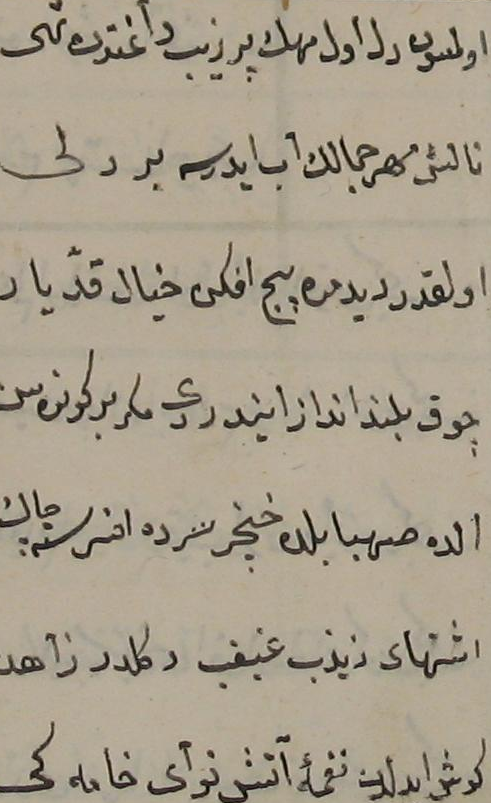 اولسون دل اول مهك پر زيب داغندن تهى
تابش مهر جمالك آب ايدرسه بر دلى
اولقدر ديدمده پيچ افكن خيال قدّ يار
چوق بلند انداز ايندردى مكر بر كون
الده صهبا بلده خنجر سرده افسر سينه چاك
اشتهاى ذيذب غبغب دكلدر زاهد
كوش ايدلدن نغمهٔ آتش نواى خامه